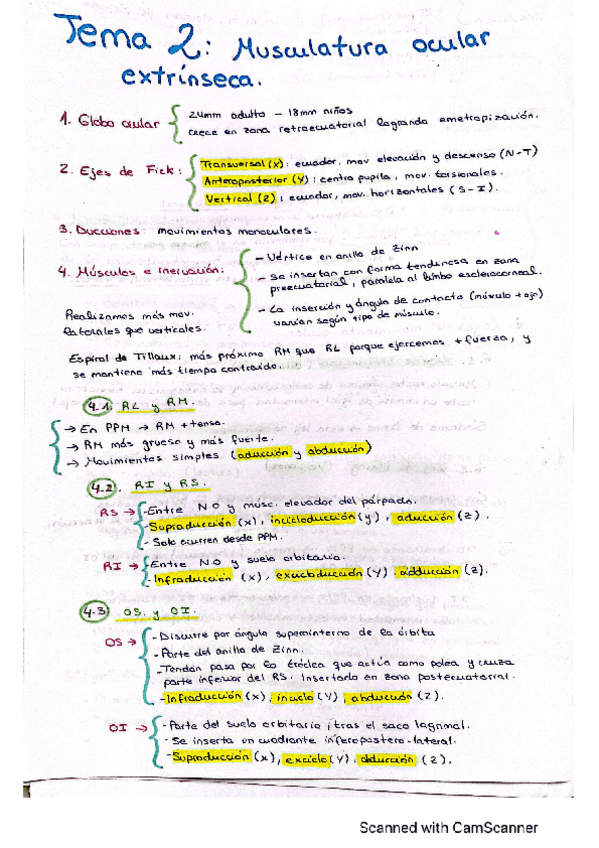 Tema 2: Musculatura ocular
extrínseca.
1. Globo ocular
24mm adulto - 18mm niños
Crece en zona retroecuatorial logrando emetropización.
2. Ejes de Fick:
Transversal (X): ecuador, mov elevación y descenso (N-T)
Anteroposterior (Y): centro pupila, mov. torsionales.
Vertical (Z); ecuador, mov. horizontales (S-I).
3. Ducciones: movimientos monoculares.
4. Músculos e inervación:
- Vértice en anillo de Zinn
- Se insertan con forma tendinosa en zona
preecuatorial, paralela al limbo esclerocorneal.
- La inserción y ángulo de contacto (músculo + ojo)
varían según tipo de músculo.
Realizamos más mov.
laterales que verticales.
Espiral de Tillaux: más próximo RM que RL porque ejercemos + fuerza, y
se mantiene más tiempo contraído.
4.1. RL y RM.
→ En PPM → RM + tenso.
→ RM más grueso y más fuerte.
→ Movimientos simples (aducción y abducción)
4.2. RI y RS.
RS →
- Entre NO y musc. elevador del párpado.
- Supraducción (x), incicloducción (y), aducción (z).
- Solo ocurren desde PPM.
RI →
- Entre NO y suelo orbitario.
- Infraducción (x), (Y). adducción (z).
4.3 OS. y OI.
OS →
- Discurre por ángulo superointerno de la órbita
- Parte del anillo de Zinn.
- Tendón pasa por la tróclea que actúa como polea y cruza
parte inferior del RS. Insertado en zona postecuatorial.
- Infraducción (x), inciclo (Y), abducción (Z).
OI →
- Parte del suelo orbitario, tras el saco lagrimal.
- Se inserta en cuadrante inferopostero-lateral.
- Supraducción (x), exciclo (Y). abducción (Z).
Scanned with CamScanner